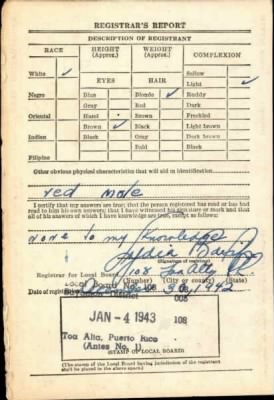 REGISTRAR'S REPORT
DESCRIPTION OF REGISTRANT
RACE HEIGHT (Approx.) WEIGHT (Approx.) COMPLEXION
White ✓ Sallow
EYES HAIR Light ✓
Negro Blue Blonde ✓ Ruddy
Gray Red Dark
Oriental Hazel Brown Freckled
Brown ✓ Black Light brown
Indian Black Gray Dark brown
Bald Black
Filipino
Other obvious physical characteristics that will aid in identification
red mole
I certify that my answers are true; that the person registered has read or has had
read to him his own answers; that I have witnessed his signature or mark and that
all of his answers of which I have knowledge are true, except as follows:
none to my knowledge
(Signature of registrar)
Registrar for Local Board 108
(Number) (City or county) (State)
Date of registration 30, 1942
005
JAN - 4 1943 108
Toa Alta, Puerto Rico
(Antes No. 1)
(STAMP OF LOCAL BOARD)
(The stamp of the Local Board having jurisdiction of the registrant
shall be placed in the above space.)